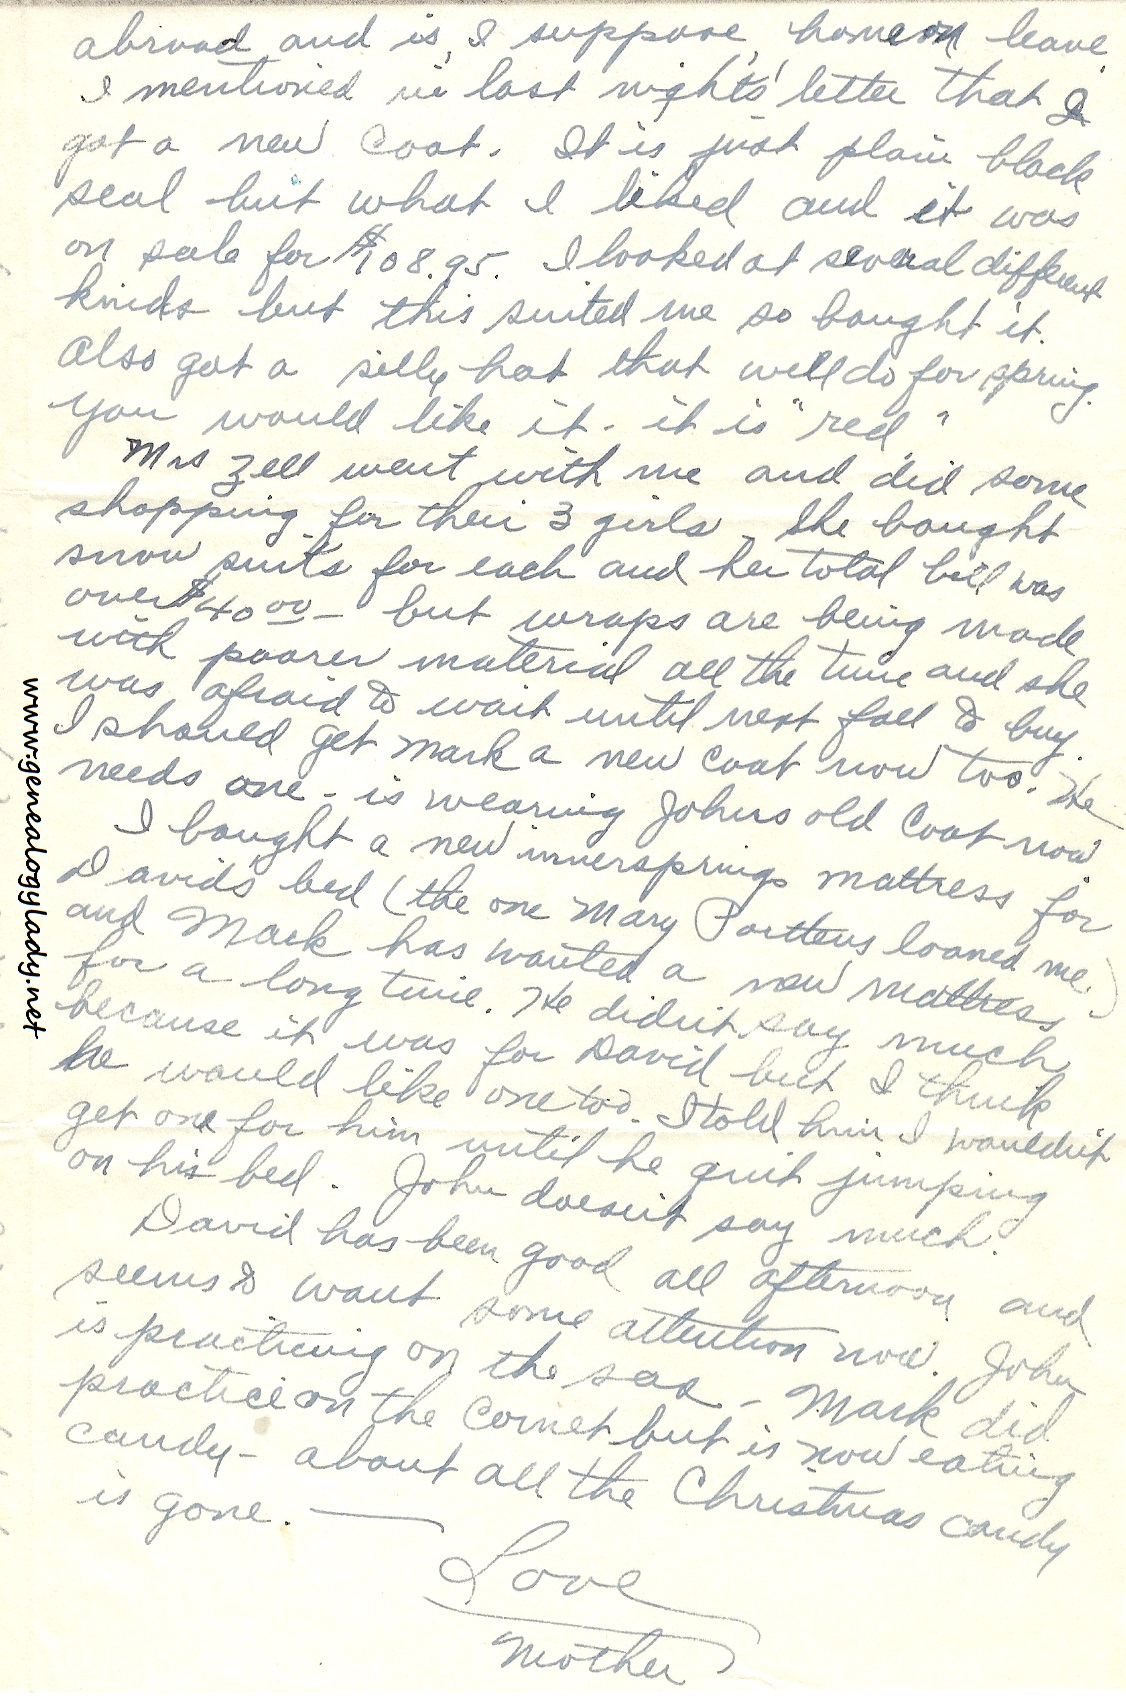 abroad and is, I suppose, home on leave.
I mentioned in last night's letter that I
got a new coat. It is just plain black
seal but what I liked and it was
on sale for $108.95. I looked at several different
kinds but this suited me so bought it.
Also got a silly hat that will do for spring.
You would like it - it is "red"
Mrs Zell went with me and did some
shopping for their 3 girls. She bought
snow suits for each and her total bill was
over $40 00 - but wraps are being made
with poorer material all the time and she
was afraid to wait until next fall to buy.
I should get Mark a new coat now too. He
needs one - is wearing Johns old coat now
I bought a new innersprings mattress for
David's bed (the one Mary Portteus loaned me)
and Mark has wanted a new mattress
for a long time. He didn't say much
because it was for David but I think
he would like one too. I told him I wouldn't
get one for him until he quit jumping
on his bed. John doesn't say much.
David has been good all afternoon and
seems to want some attention now. John
is practicing on the sax - Mark did
practice on the cornet but is now eating
candy - about all the Christmas candy
is gone. —
Love
Mother
www.genealogylady.net